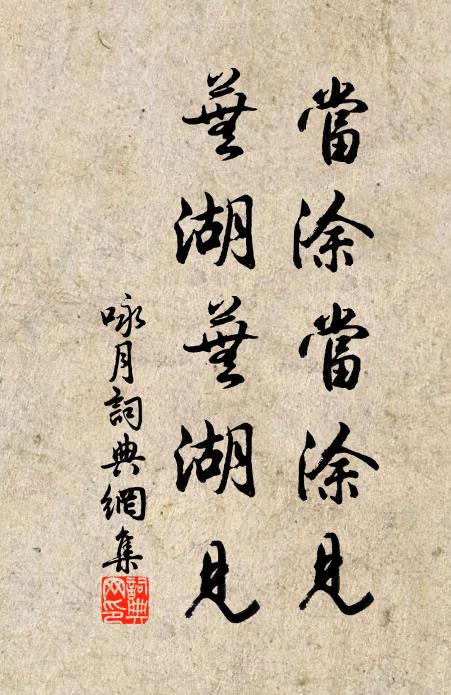 當涂當涂見
蕪湖蕪湖見
咏月詞典網集
詞典網印